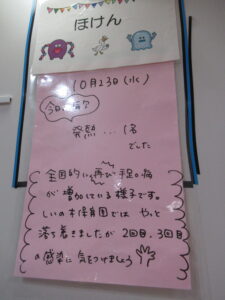 ほけん
10月23日(水)
今日の病欠
発熱...1名
でした
全国的に再び手足口病
が増加している様子です。
しいの木保育園では やっと
落ち着きましたが 2回目、3回目
の感染に気をつけましょう